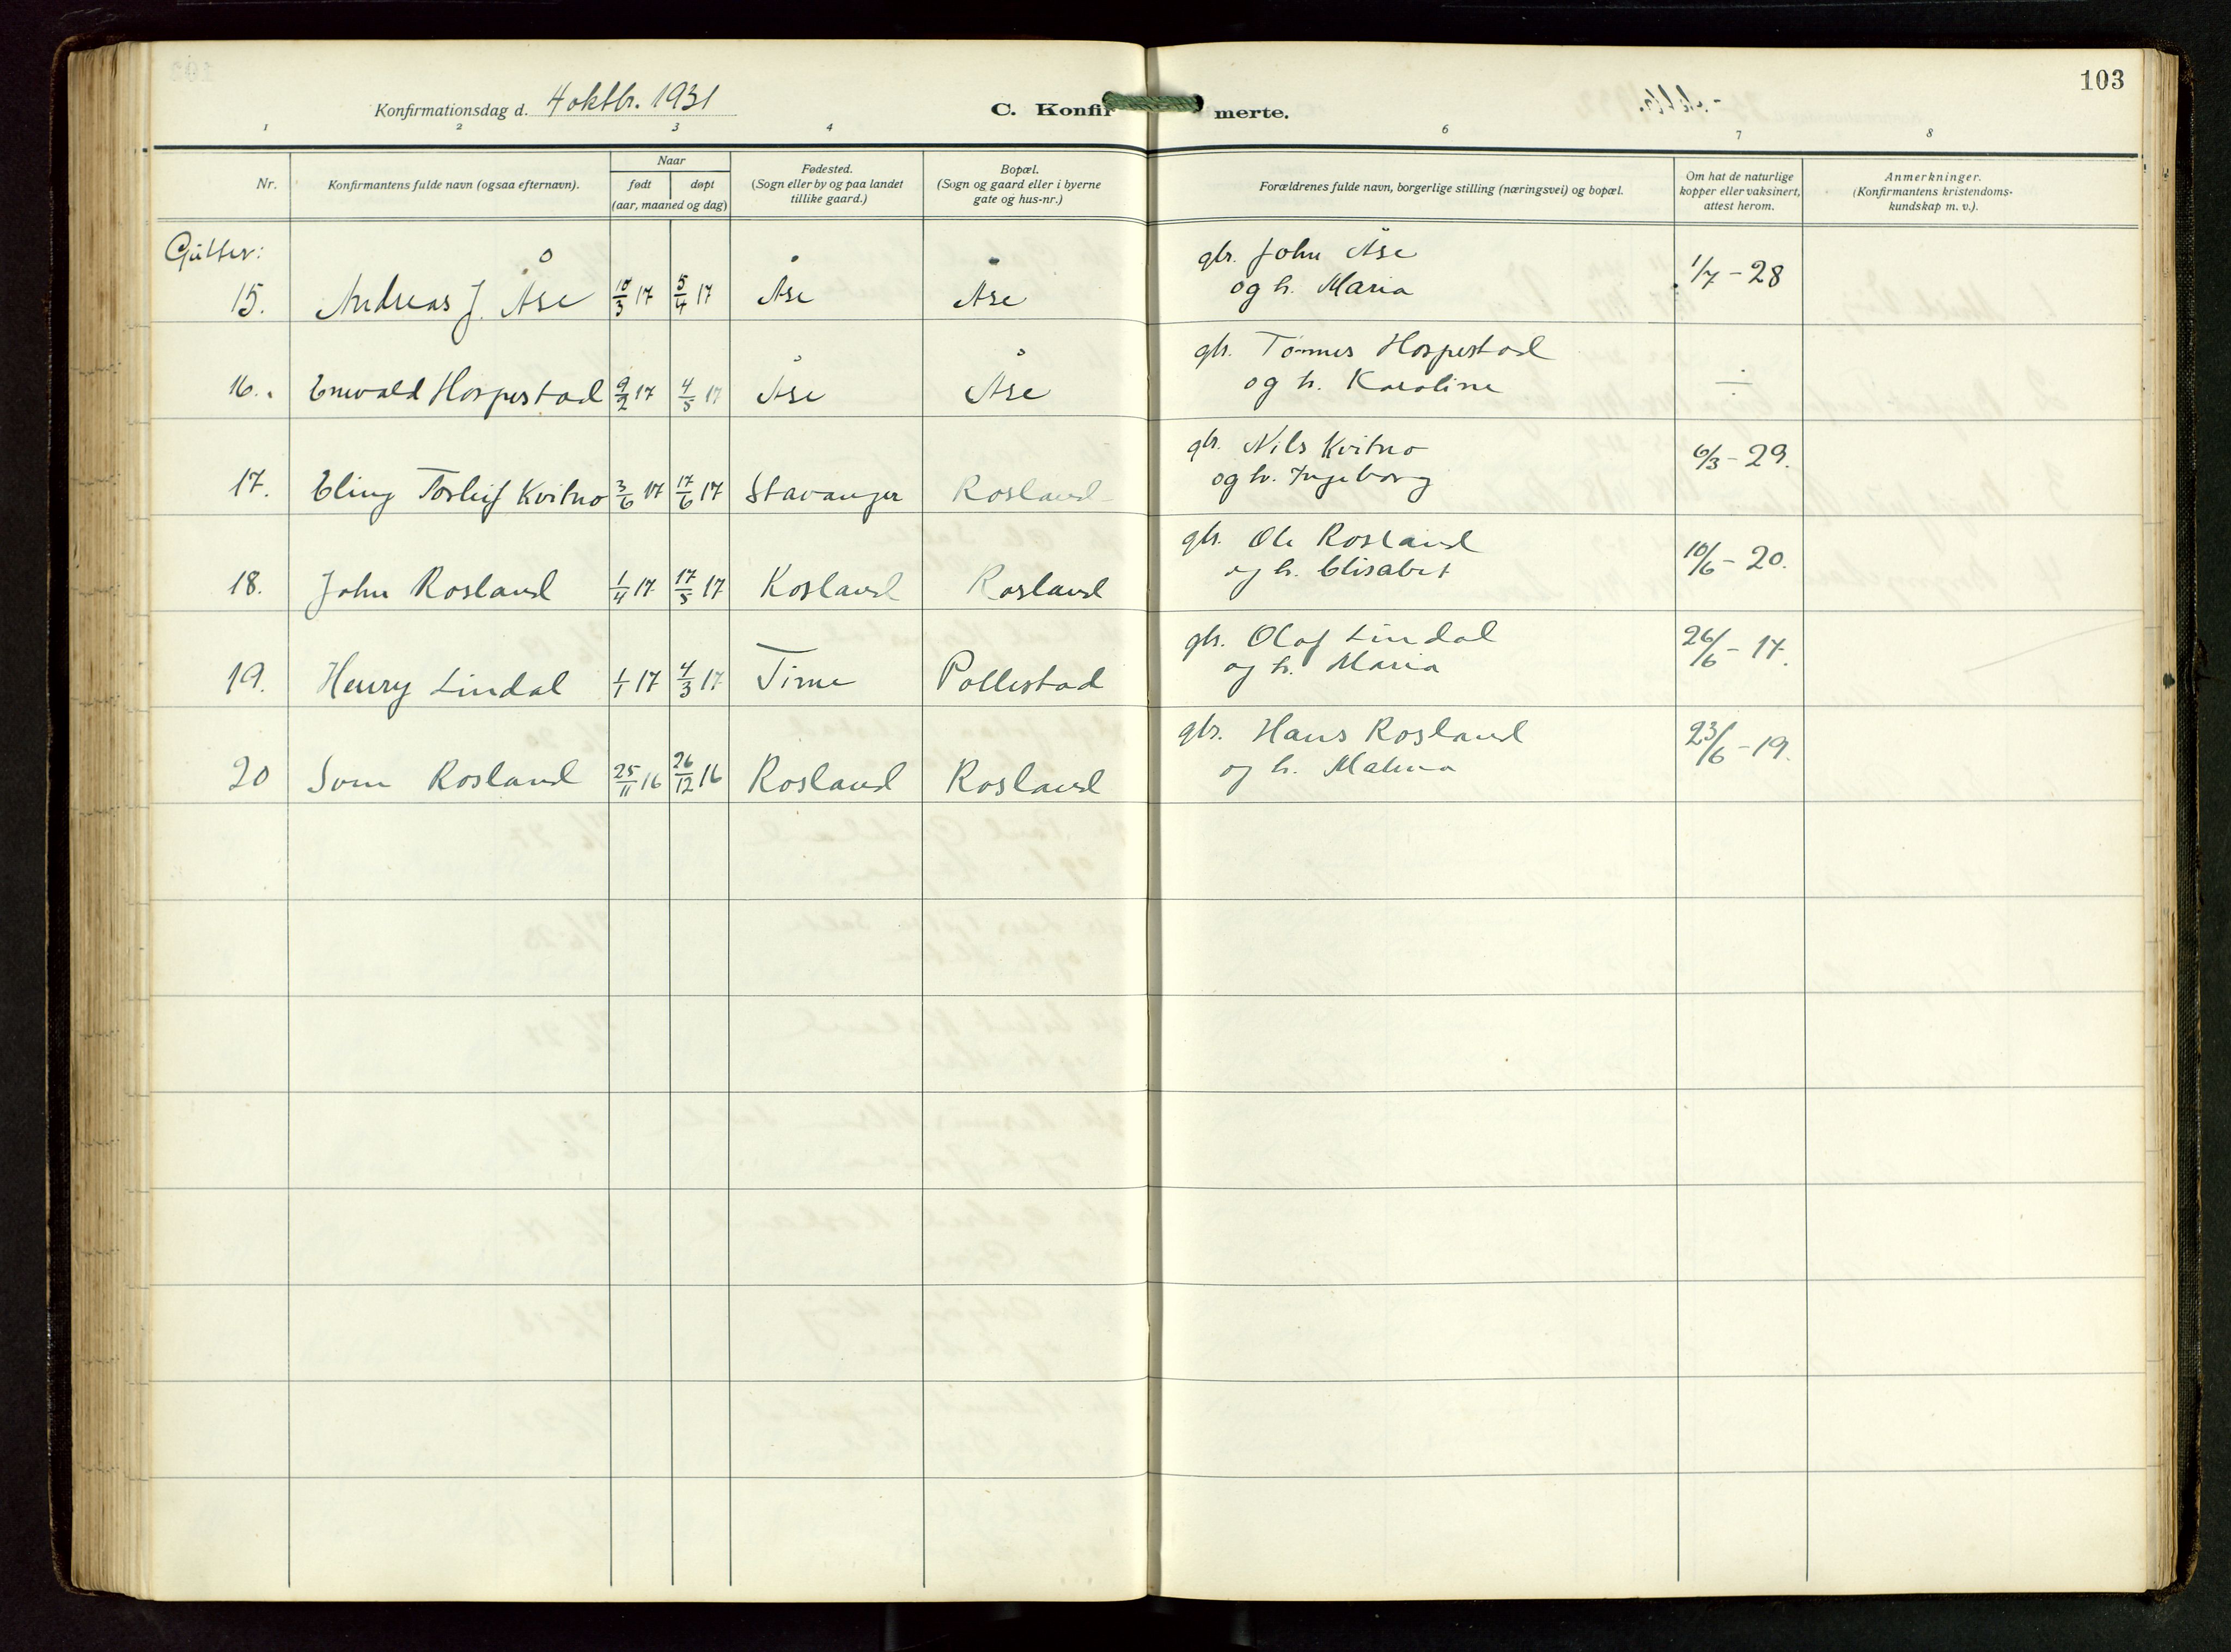 103
Konfirmationsdag d. 4 oktbr. 1931
C. Konfirmerte.
1 2 3 4 6 7 8
Nr.
Konfirmantens fulde navn (ogsaa efternavn).
Naar
født døpt
(aar, maaned og dag)
Fødested.
(Sogn eller by og paa landet
tillike gaard.)
Bopæl.
(Sogn og gaard eller i byerne
gate og hus-nr.)
Forældrenes fulde navn, borgerlige stilling (næringsvei) og bopæl.
Om hat de naturlige
kopper eller vaksinert,
attest herom.
Anmerkninger.
(Konfirmantens kristendoms-
kundskap m. v.).
Gutter:
15. Andreas J. Åse 10/3 17 5/4 17 Åse Åse
gbr. John Åse
og h. Maria
1/7 - 28
16. Enevald Hospestad 9/2 17 4/5 17 Åse Åse
gbr. Tønnes Hospestad
og h. Karoline
÷
17. Eling Torleif Kvitno 3/6 17 17/6 17 Stavanger Rosland
gbr. Nils Kvitno
og h. Ingeborg
6/3 - 29.
18. John Rosland 1/4 17 17/5 17 Rosland Rosland
gbr. Ole Rosland
og h. Elisabet
10/6 - 20.
19. Henry Lindal 1/1 17 4/3 17 Time Pollestad
gbr. Olaf Lindal
og h. Maria
26/6 - 17.
20 Rosland 25/11 16 26/12 16 Rosland Rosland
gbr. Hans Rosland
og h. Malena
23/6 - 19.